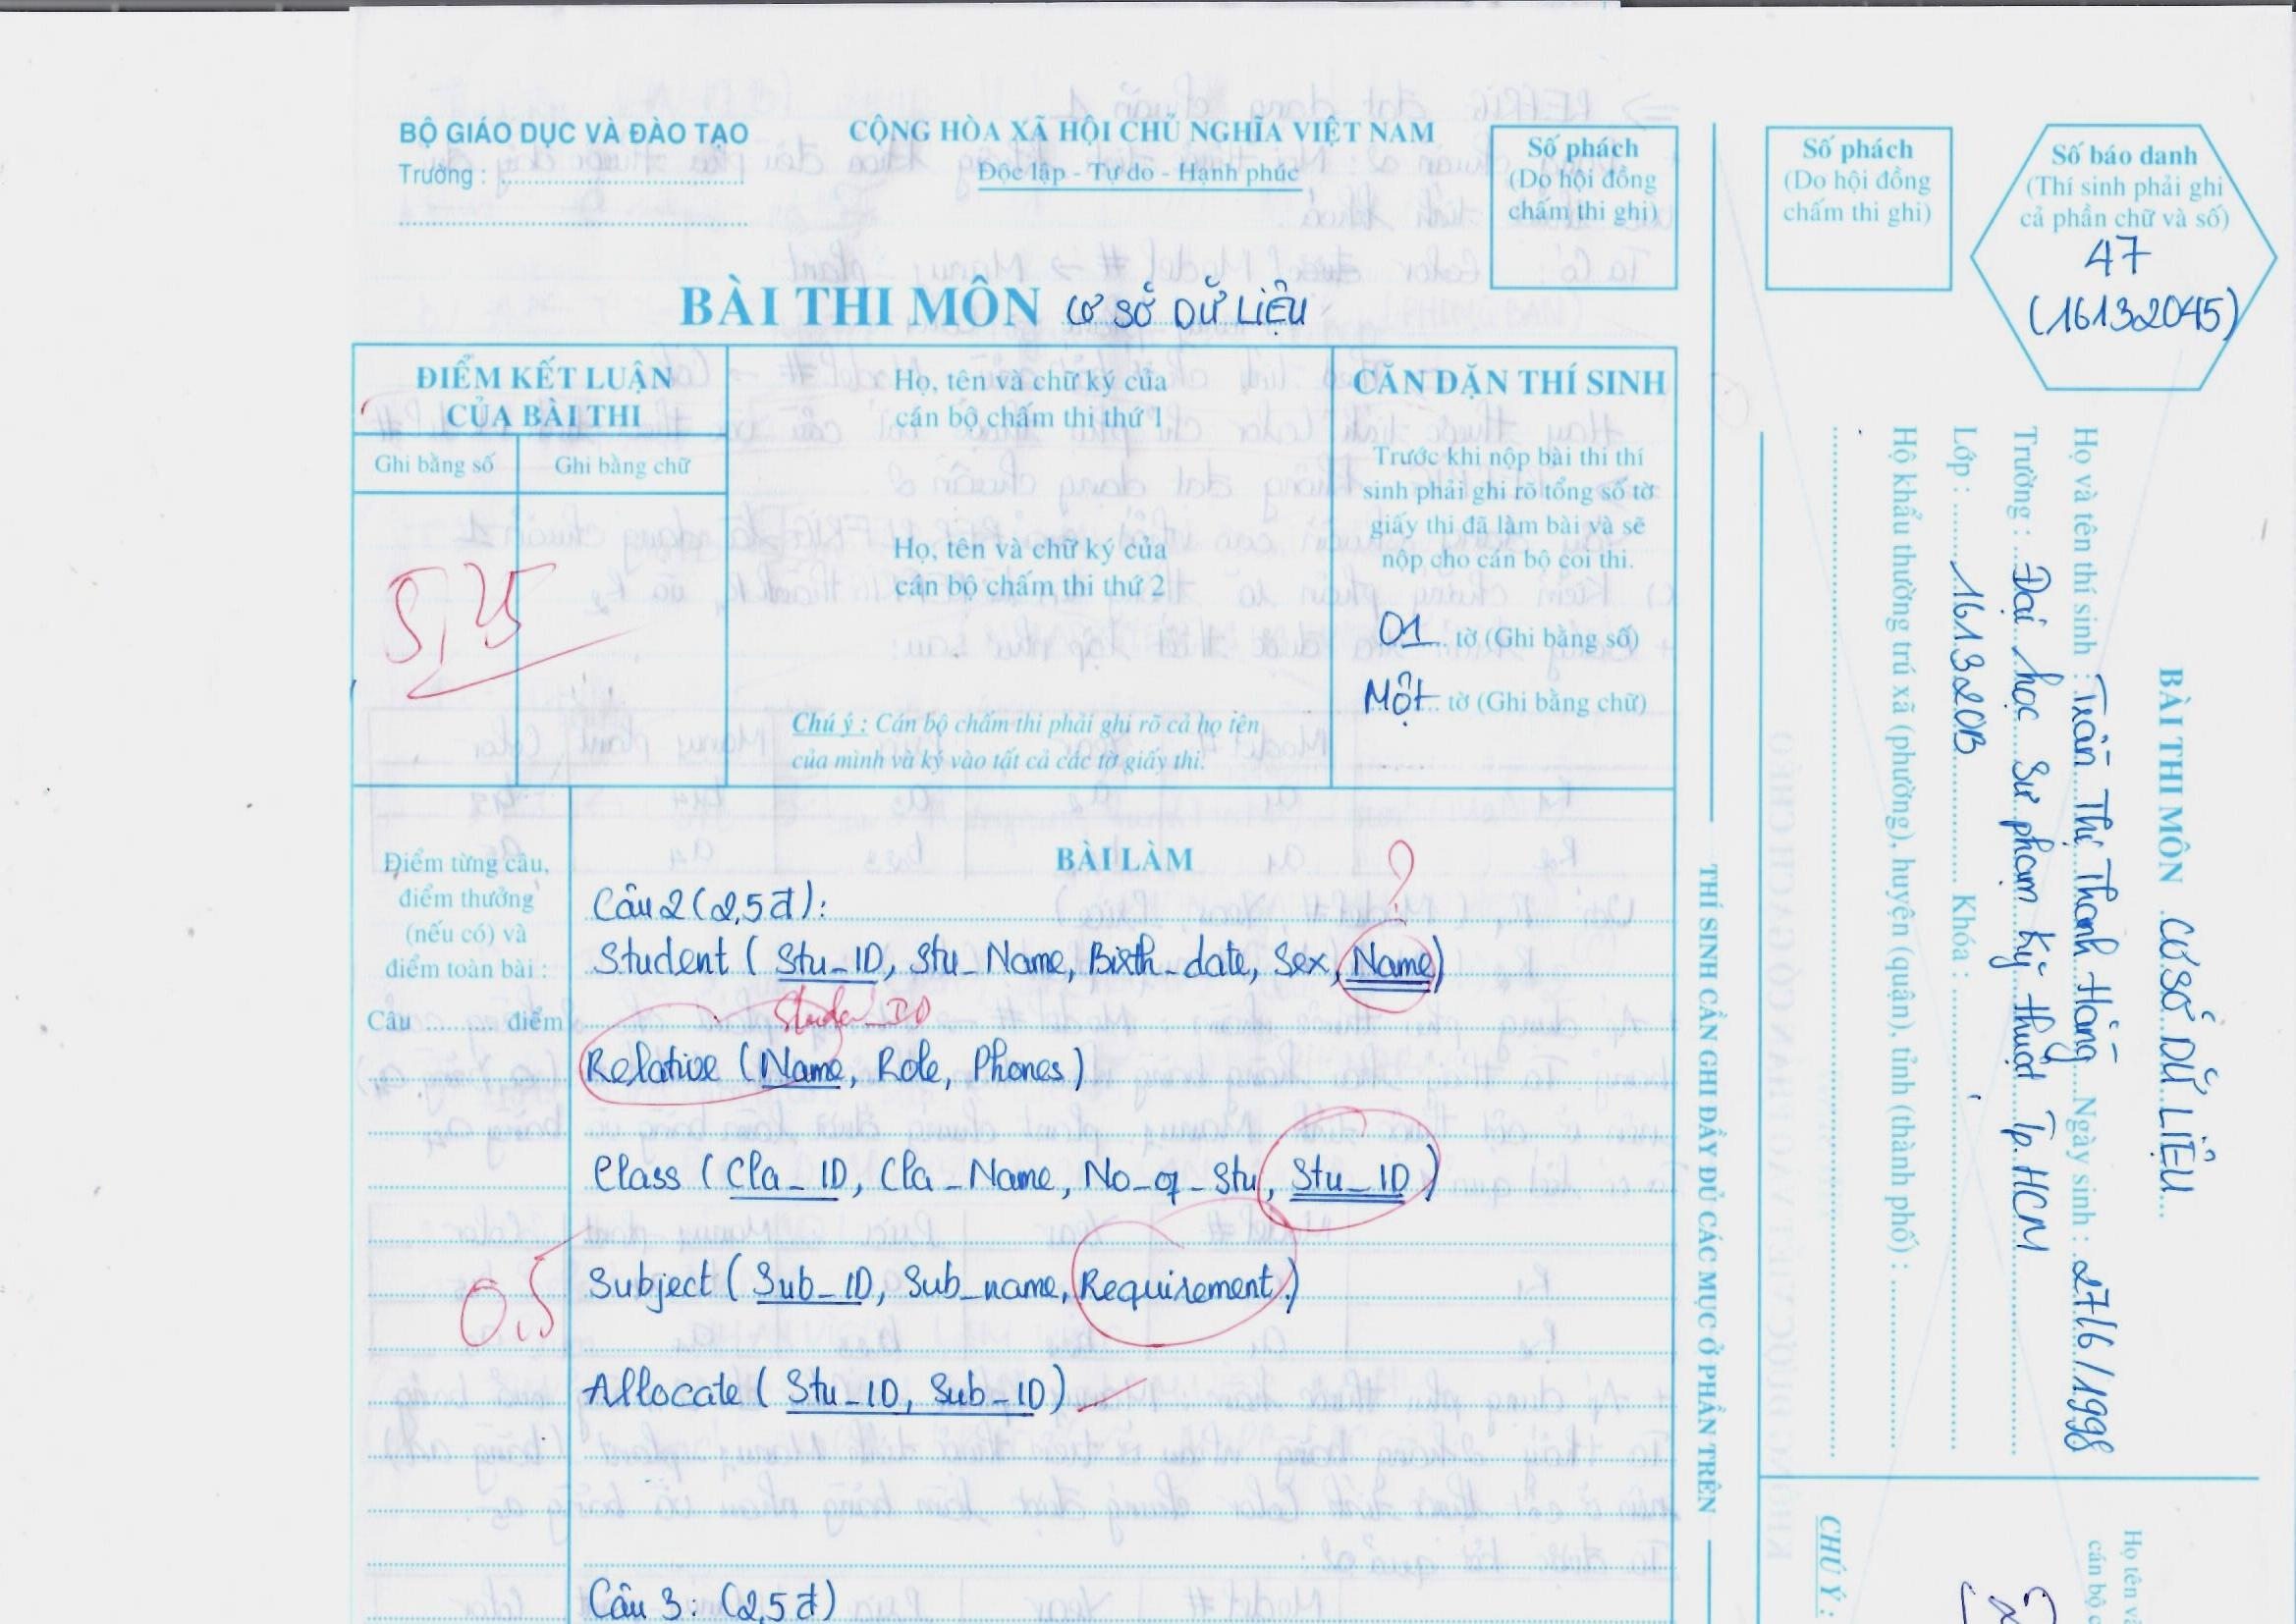 BỘ GIÁO DỤC VÀ ĐÀO TẠO
Trường :
CỘNG HÒA XÃ HỘI CHỦ NGHĨA VIỆT NAM
Độc lập - Tự do - Hạnh phúc
Số phách
(Do hội đồng
chấm thi ghi)
BÀI THI MÔN CƠ SỞ DỮ LIỆU
ĐIỂM KẾT LUẬN
CỦA BÀI THI
Ghi bằng số
Ghi bằng chữ
Họ, tên và chữ ký của
cán bộ chấm thi thứ 1
Họ, tên và chữ ký của
cán bộ chấm thi thứ 2
Chú ý : Cán bộ chấm thi phải ghi rõ cả họ tên
của mình và ký vào tất cả các tờ giấy thi.
CĂN DẶN THÍ SINH
Trước khi nộp bài thi thí
sinh phải ghi rõ tổng số tờ
giấy thi đã làm bài và sẽ
nộp cho cán bộ coi thi.
01 tờ (Ghi bằng số)
Một tờ (Ghi bằng chữ)
Điểm từng câu,
điểm thưởng
(nếu có) và
điểm toàn bài :
Câu .......... điểm
0,5
BÀI LÀM
?
Câu 2 (2,5đ):
Student ( Stu_ID, Stu_Name, Birth_date, Sex, Name)
Relative (Name, Role, Phones)
Class ( Cla_ID, Cla_Name, No_of_Stu, Stu_ID)
Subject ( Sub_ID, Sub_name, Requirement.)
Allocate ( Stu_ID, Sub_ID)
Câu 3: (2,5đ)
THÍ SINH CẦN GHI ĐẦY ĐỦ CÁC MỤC Ở PHẦN TRÊN
Số phách
(Do hội đồng
chấm thi ghi)
Số báo danh
(Thí sinh phải ghi
cả phần chữ và số)
47
(16132045)
BÀI THI MÔN CƠ SỞ DỮ LIỆU
Họ và tên thí sinh : Trần Thị Thanh Hằng Ngày sinh : 27/6/1998
Trường : Đại học Sư phạm Kỹ thuật Tp.HCM
Lớp : 161320B Khóa :
Hộ khẩu thường trú xã (phường), huyện (quận), tỉnh (thành phố) :
CHÚ Ý :
Họ tên và
cán bộ